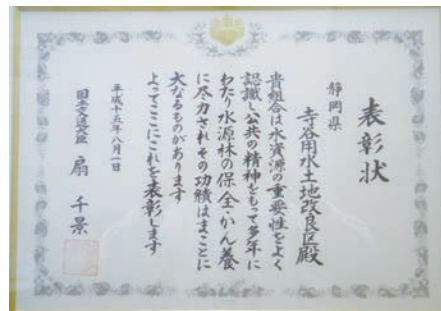 表彰状
静岡県
寺谷用水土地改良区殿
貴組合は水資源の重要性をよく
認識し公共の精神をもって多年に
わたり水源林の保全・かん養
に尽力されその功績はまことに
大なるものがあります
よってここにこれを表彰します
平成十五年八月一日
国土交通大臣 扇千景